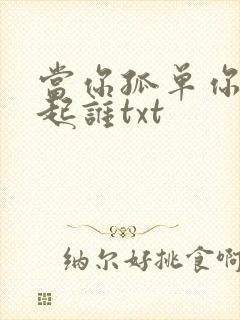 當你孤单你
起誰txt
纳尔好挑食啊